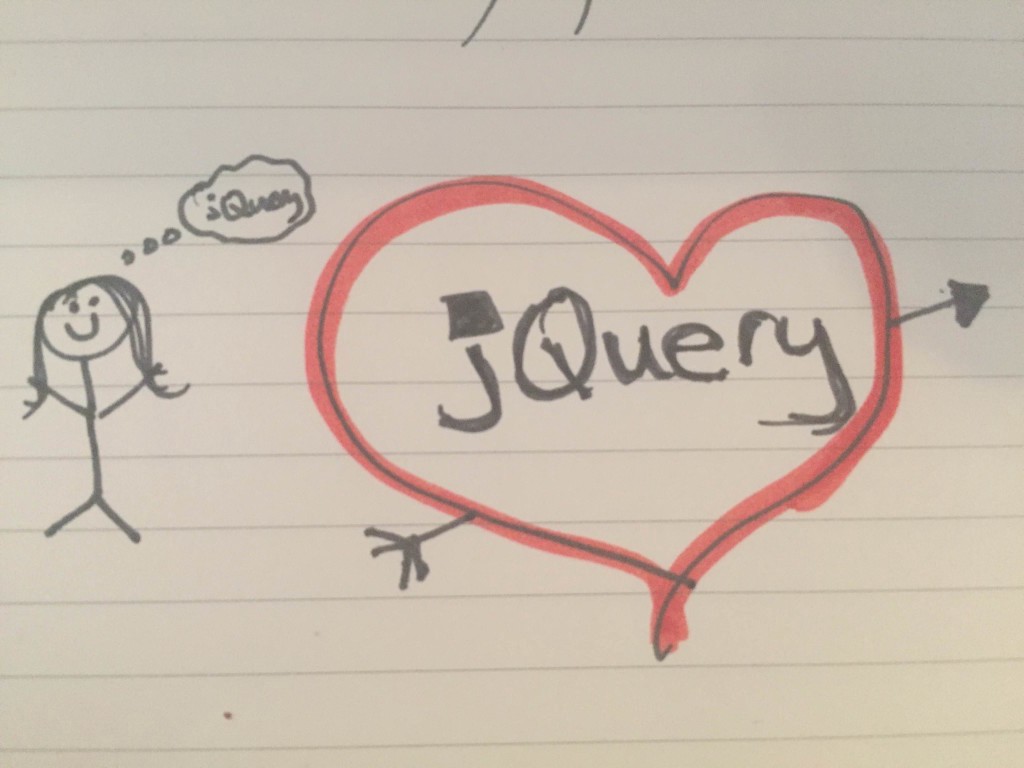 jQuery
jQuery